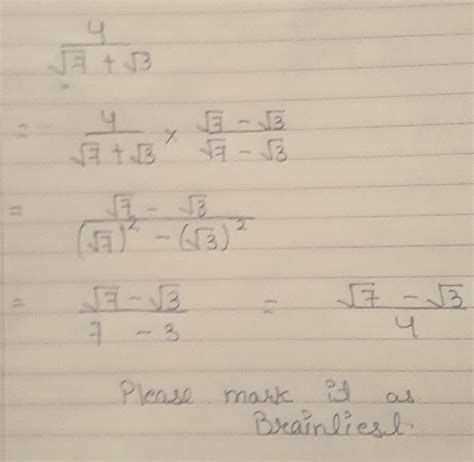 4
√7 + √3
= 4 / √7 + √3 × √7 - √3 / √7 - √3
= √7 - √3 / (√7)² - (√3)²
= √7 - √3 / 7 - 3 = √7 - √3 / 4
Please mark it as
Brainliest.